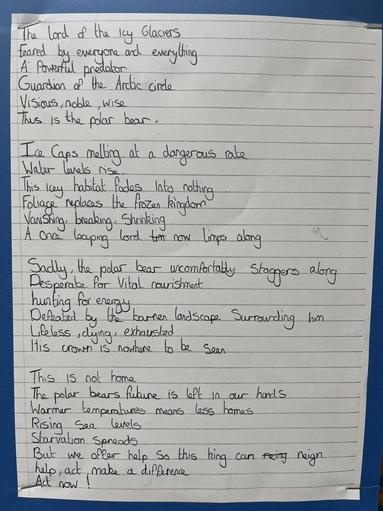 The lord of the Icy Glaciers
Feared by everyone and everything
A Powerful predator
Guardian of the Arctic circle
Visious, noble, wise
Thus is the polar bear.
Ice Caps melting at a dangerous rate
Water levels rise.
This icey habitat fades Into nothing
Foliage replaces the frozen kingdom
Vanishing, breaking, Shrinking
A once leaping lord now limps along
Sadly, the polar bear uncomfortably Staggers along
Desperate for Vital nourishment
hunting for energy
Defeated by the barren landscape Surrounding him
Lifeless, dying, exhausted
His crown is nowhere to be seen
This is not home
The polar bears future is left in our hands
Warmer temperatures means less homes
Rising Sea levels
Starvation Spreads
But we offer help So this king can reing neign
help, act, make a difference
Act now!